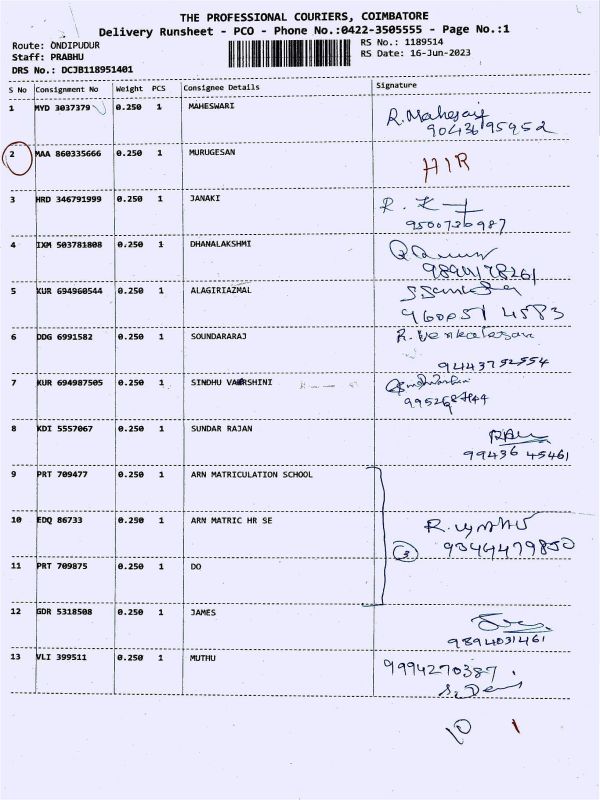 THE PROFESSIONAL COURIERS, COIMBATORE
Delivery Runsheet - PCO - Phone No.:0422-3505555 - Page No.:1
Route: ONDIPUDUR RS No.: 1189514
Staff: PRABHU RS Date: 16-Jun-2023
DRS No.: DCJB118951401
S No Consignment No Weight PCS Consignee Details Signature
1 MYD 3037379 0.250 1 MAHESWARI R.
2 MAA 860335666 0.250 1 MURUGESAN
3 HRD 346791999 0.250 1 JANAKI R.
9500736987
4 IXM 503781808 0.250 1 DHANALAKSHMI
5 KUR 694960544 0.250 1 ALAGIRIAZMAL
960051 4583
6 DDG 6991582 0.250 1 SOUNDARARAJ R. Venkatesan
9443752554
7 KUR 694987505 0.250 1 SINDHU VARSHINI
8 KDI 5557067 0.250 1 SUNDAR RAJAN
99436 45461
9 PRT 709477 0.250 1 ARN MATRICULATION SCHOOL
10 EDQ 86733 0.250 1 ARN MATRIC HR SE R.
3 9344479850
11 PRT 709875 0.250 1 DO
12 GDR 5318508 0.250 1 JAMES
9894031461
13 VLI 399511 0.250 1 MUTHU 9994270387
10 1